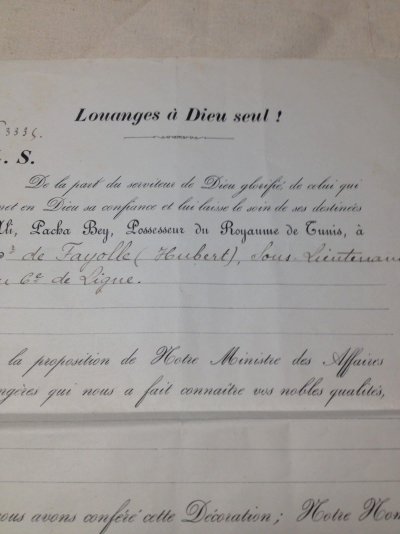 Louanges à Dieu seul !
3335.
. S.
De la part du serviteur de Dieu glorifié, de celui qui
met en Dieu sa confiance et lui laisse le soin de ses destinées
Ali, Pacha Bey, Possesseur du Royaume de Tunis, à
de Fayolle (Hubert), Sous-Lieutenan
6e de Ligne.
la proposition de Notre Ministre des Affaires
ngères qui nous a fait connaître vos nobles qualités,
ous avons conféré cette Décoration ; Notre Nom